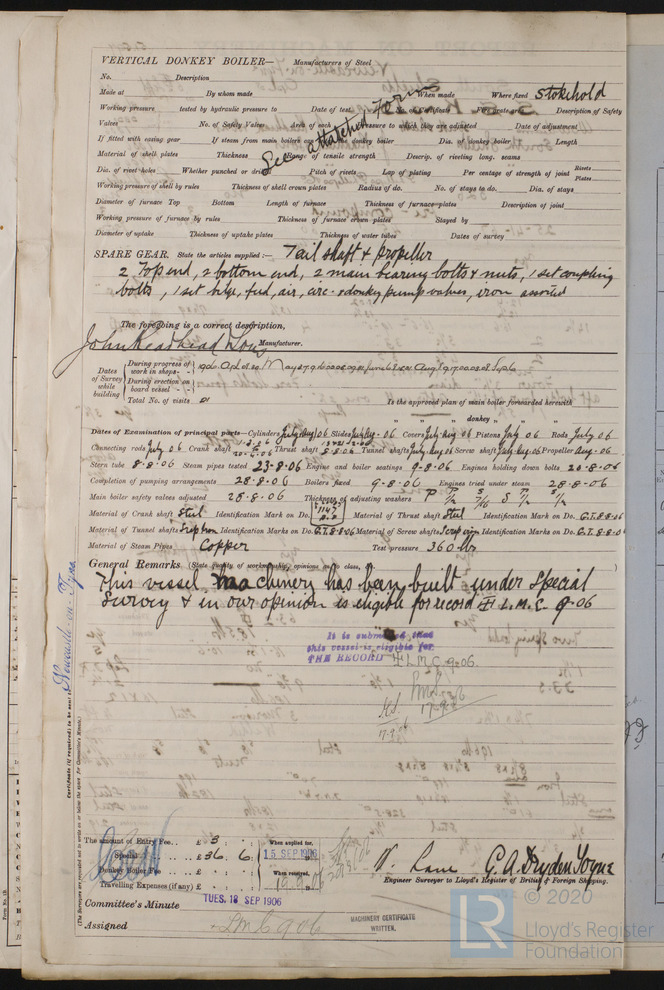 VERTICAL DONKEY BOILER— Manufacturers of Steel
No. Description
Made at By whom made When made Where fixed Stokehold
Working pressure tested by hydraulic pressure to Date of test No. of Certificate Fire grate area Description of Safety
Valves No. of Safety Valves Area of each Pressure to which they are adjusted Date of adjustment
See attached Form
If fitted with easing gear If steam from main boilers can enter the donkey boiler Dia. of donkey boiler Length
Material of shell plates Thickness Range of tensile strength Descrip. of riveting long. seams
Dia. of rivet holes Whether punched or drilled Pitch of rivets Lap of plating Per centage of strength of joint Rivets Plates
Working pressure of shell by rules Thickness of shell crown plates Radius of do. No. of stays to do. Dia. of stays
Diameter of furnace Top Bottom Length of furnace Thickness of furnace plates Description of joint
Working pressure of furnace by rules Thickness of furnace crown plates Stayed by
Diameter of uptake Thickness of uptake plates Thickness of water tubes Dates of survey
SPARE GEAR. State the articles supplied :— Tail shaft & propeller
2 Top end, 2 bottom end, 2 main bearing bolts & nuts, 1 set coupling
bolts, 1 set bilge, feed, air, circ. & donkey pump valves, iron assorted
The foregoing is a correct description,
John Readhead & Sons Manufacturer.
Dates of Survey while building
During progress of work in shops - - 1906
During erection on board vessel - - -
Total No. of visits Is the approved plan of main boiler forwarded herewith
" " " donkey " " "
Dates of Examination of principal parts—Cylinders July Aug 06 Slides July Aug. 06 Covers July Aug 06 Pistons July 06 Rods July 06
Connecting rods July 06 Crank shaft Thrust shaft Tunnel shafts July Aug 06 Screw shaft July Aug 06 Propeller Aug. 06
Stern tube 8-8-06 Steam pipes tested 23-8-06 Engine and boiler seatings 9-8-06 Engines holding down bolts 20-8-06
Completion of pumping arrangements 28-8-06 Boilers fixed 9-8-06 Engines tried under steam 28-8-06
Main boiler safety valves adjusted 28-8-06 Thickness of adjusting washers
Material of Crank shaft Steel Identification Mark on Do. Material of Thrust shaft Steel Identification Mark on Do. G.T. 8-8-06
Material of Tunnel shafts Identification Marks on Do. G.T. 8-8-06 Material of Screw shafts Scrap iron Identification Marks on Do. G.T. 8-8-06
Material of Steam Pipes Copper Test pressure 360 lbs
General Remarks (State quality of workmanship, opinions as to class,
This vessel machinery has been built under Special
Survey & in our opinion is eligible for record L.M.C. 9-06
It is submitted that
this vessel is eligible for
THE RECORD L.M.C. 9.06.
17-9-06
17-9-06
Newcastle-on-Tyne
Certificate (if required) to be sent to
(The Surveyors are requested not to write on or below the space for Committee's Minute.)
The amount of Entry Fee.. £ 3 : : When applied for,
Special .. £ 36 . 6 : 15 SEP 1906
Donkey Boiler Fee £ : : When received,
Travelling Expenses (if any) £ : :
G. A. Dryden Yoyne
Engineer Surveyor to Lloyd's Register of British & Foreign Shipping.
Committee's Minute TUES. 18 SEP 1906
Assigned LMC 9.06
MACHINERY CERTIFICATE
WRITTEN.
© 2020
LR
Lloyd's Register
Foundation